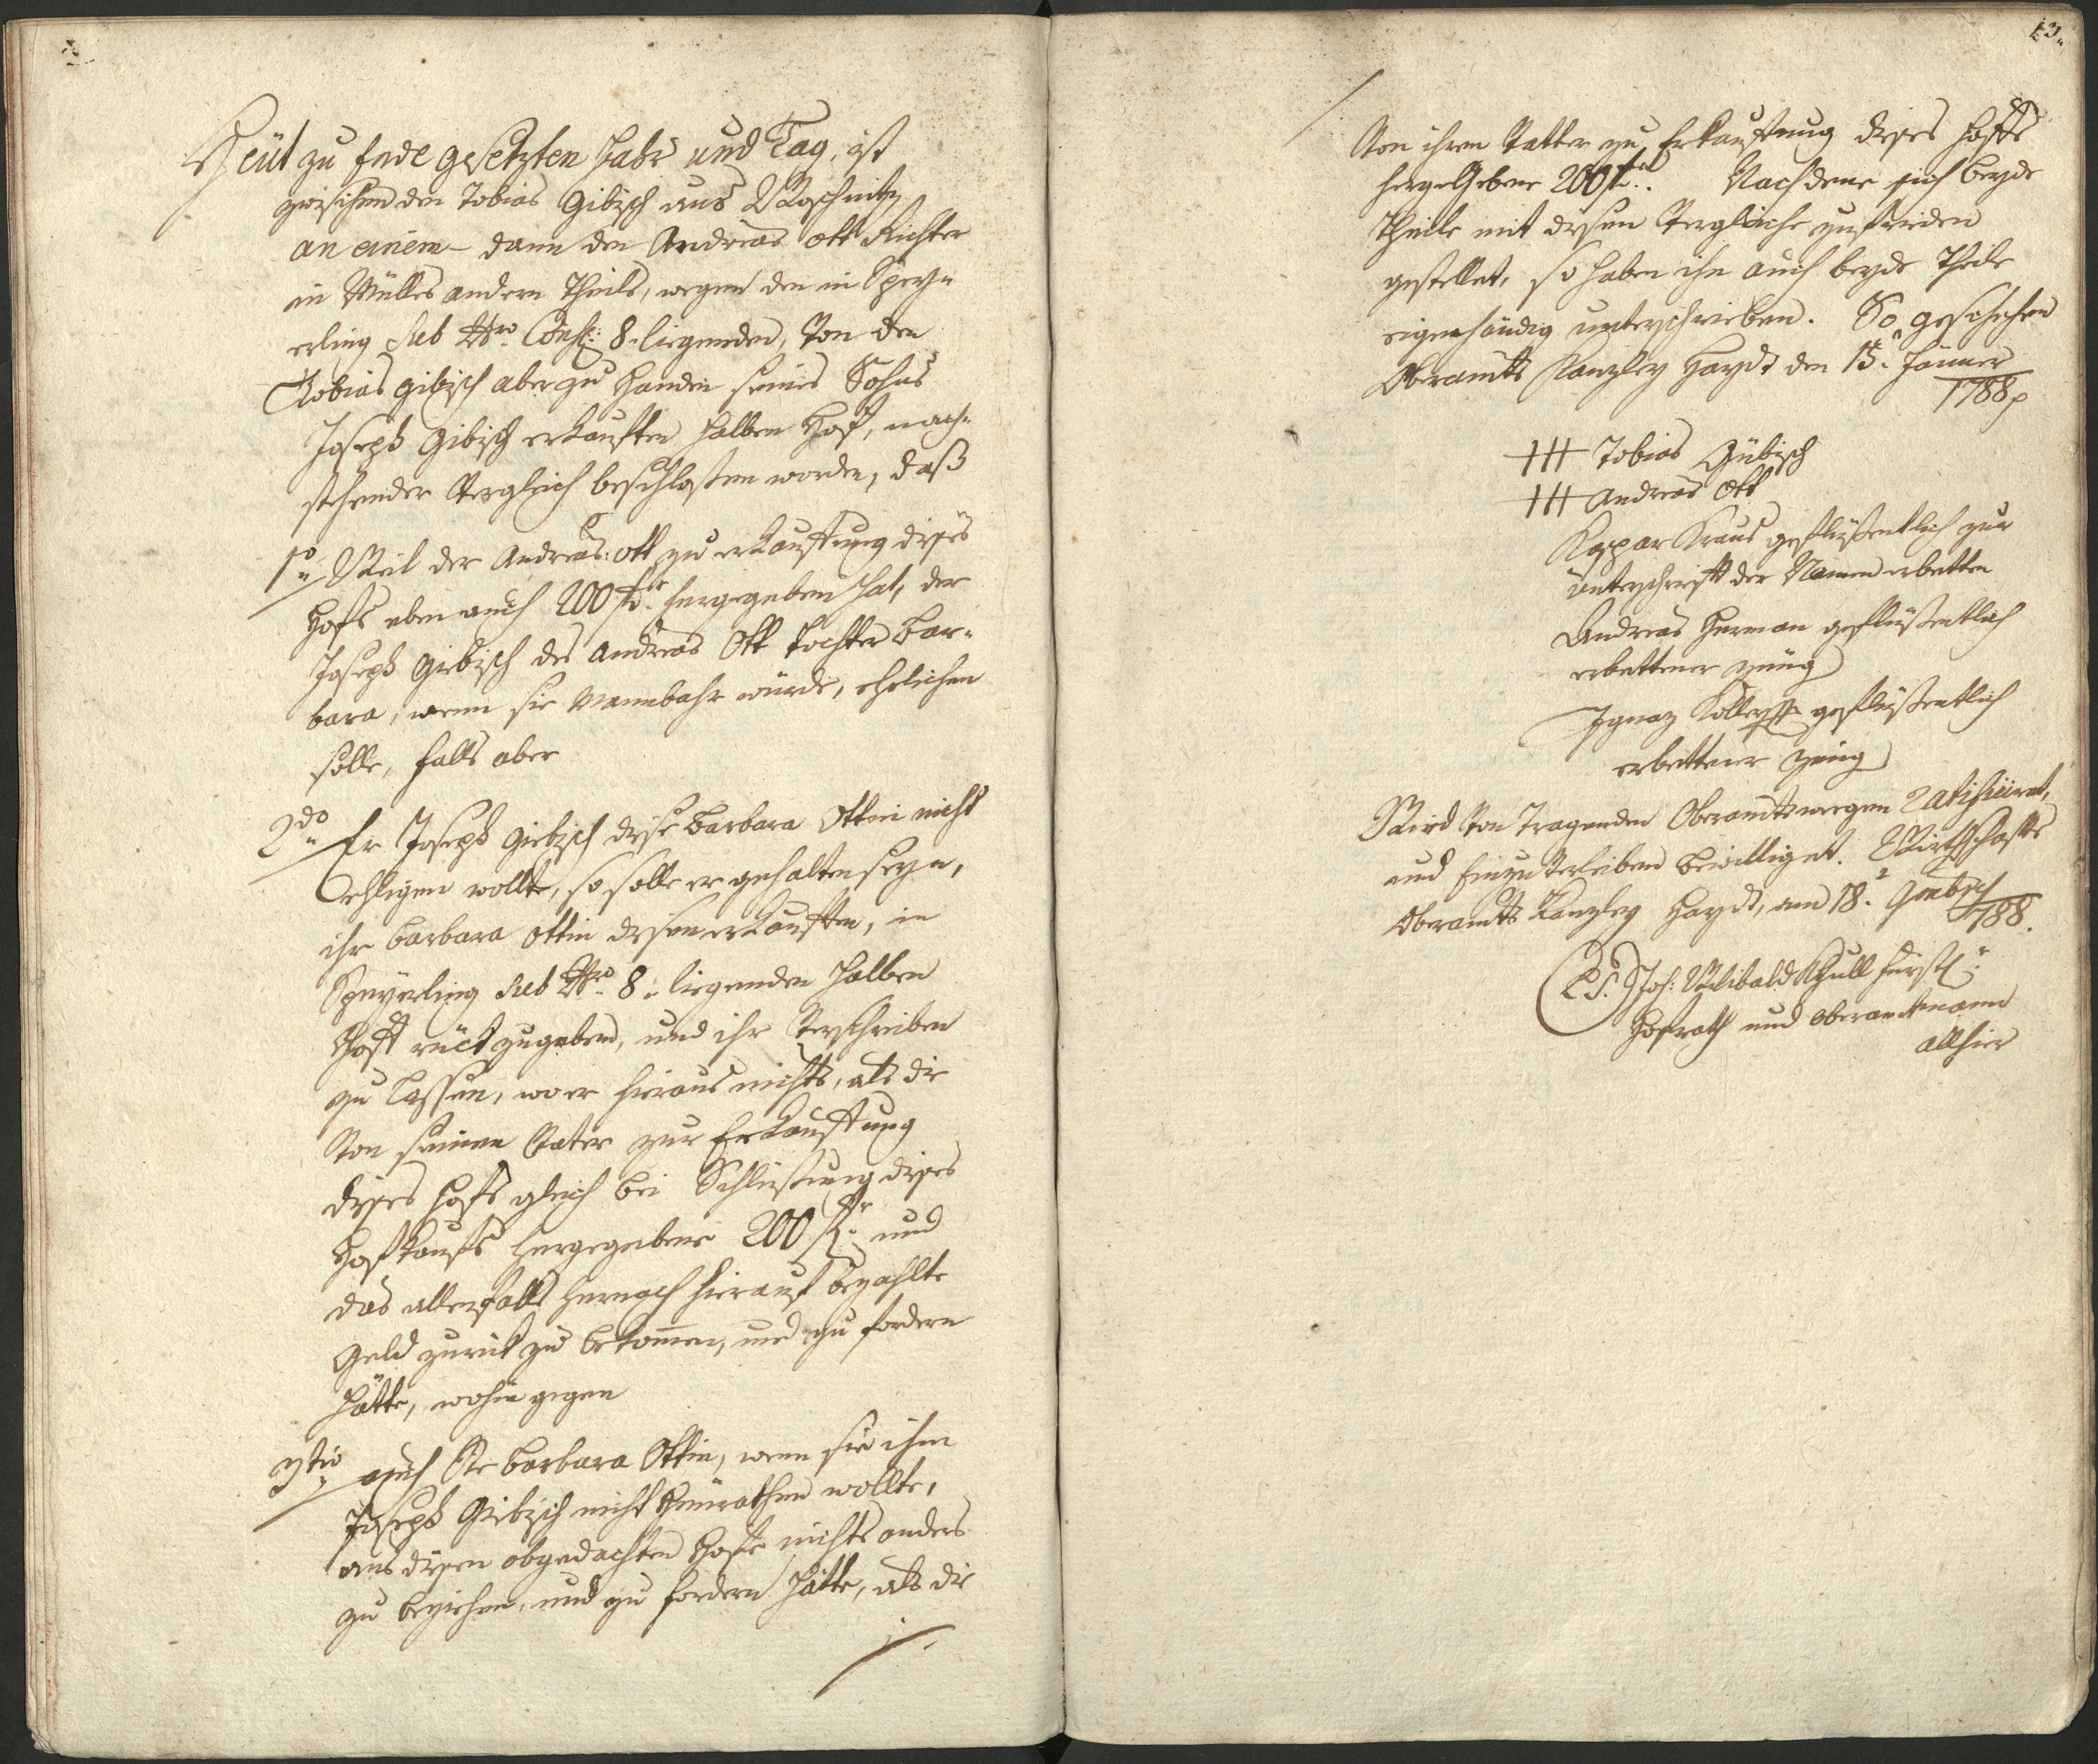 13.
Heüt zu Ende gesetzten Jahr und Tag, ist
zwischen den Tobias Gibisch aus Woschnitz
an einem – dann den Andreas Ott Richter
in Mülles andern Theils, wegen den in Spey=
erling sub Nro Consc: 8. liegenden, von den
Tobias Gibisch aber zu Handen seines Sohns
Joseph Gibisch erkauften halben Hof, nach=
stehender Vergleich beschlossen worden, daß
1o Weil der Andreas Ott zu erkauffung dieses
Hofs eben auch 200 f hergegeben hat, der
Joseph Giebisch des Andreas Ott Tochter Bar=
bara, wenn sie Mannbahr würde, ehelichen
solle, falls aber
2do Er Joseph Giebisch diese Barbara Ottin nicht
ehligen wollte, so solle er gehalten seyn,
ihr Barbara Ottin diesen erkauften, in
Speyerling sub Nro 8. liegenden halben
Hoff rückzugeben, und ihr verschreiben
zu lassen, wo er hieraus nichts, als die
von seinen Vater zur Erkauffung
dieses Hofs gleich bei Schliessung dieses
Hofkaufs hergegebene 200 f und
das allenfalls hernach hierauf bezahlte
Geld zurük zu bekomen, und zu fordern
hätte, wohingegen
3tio auch Sie Barbara Ottin, wenn sie ihm
Joseph Giebisch nicht heurathen wollte,
aus diesen obgedachten Hofe nichts anders
zu beziehen, und zu fordern hätte, als die
Von ihren Vatter zu Erkauffung dieses Hoffs
hergegebene 200 f. Nachdeme sich beyde
Theile mit diesen Vergleiche zufrieden
gestellet, so haben ihn auch beyde Theile
eigenhändig unterschrieben. So geschehen
Oberamts Kanzley Hayd den 15. Jänner
1788
+++ Tobias Gübisch
+++ Andreas Ott
Kaspar Kraus geflissentlich zur
unterschrift der Namen erbetten
Andreas Herman geflissentlich
erbettener Zeug
Ignaz geflissentlich
erbettener Zeug
Wird von tragenden Oberamtswegen ratifiziret,
und Einzuverleiben bewilliget. Wirthschafts
Oberamts Kanzley Hayd, am 18.
788.
(L.S.) Joh: Wilibald Schull fürstl:
Hofrath und Oberamtmann
allhier